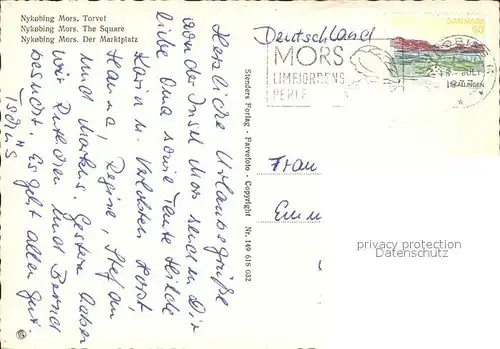 Nykøbing Mors. Torvet
Nykøbing Mors. The Square
Nykøbing Mors. Der Marktplatz
Herzliche Urlaubsgrüße
von der Insel Mors senden Dir
liebe Oma sowie Tante Hilde
Karin u. Horst,
Hanna, Regine, Stefan
und Markus. Gestern haben
wir Ruthchen und Bernd
besucht. Es geht allen gut.
Tschüß
Stenders Forlag - Farvefoto - Copyright Nr. 149 618 032
Deutschland
MORS
LIMFJORDENS
PERLE
DANMARK
90
SKALLINGEN
Frau
privacy protection
watermark